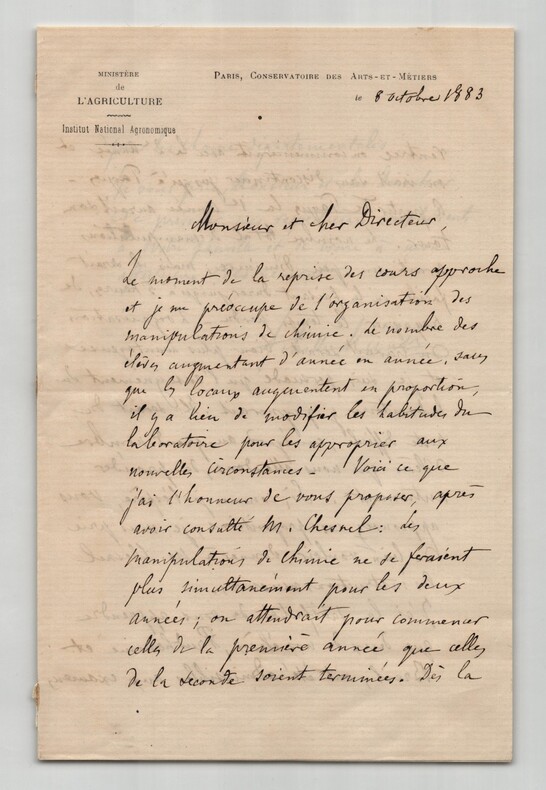 MINISTÈRE
de
L'AGRICULTURE
Institut National Agronomique
PARIS, CONSERVATOIRE DES ARTS-ET-MÉTIERS
le 8 octobre 1883
Monsieur et cher Directeur,
Le moment de la reprise des cours approche
et je me préoccupe de l'organisation des
manipulations de chimie. Le nombre des
élèves augmentant d'année en année, sans
que les locaux augmentent en proportion,
il y a lieu de modifier les habitudes du
laboratoire pour les approprier aux
nouvelles circonstances - Voici ce que
j'ai l'honneur de vous proposer, après
avoir consulté M. Chesnel : Les
manipulations de chimie ne se feraient
plus simultanément pour les deux
années ; on attendrait pour commencer
celles de la première année que celles
de la seconde soient terminées. Dès la